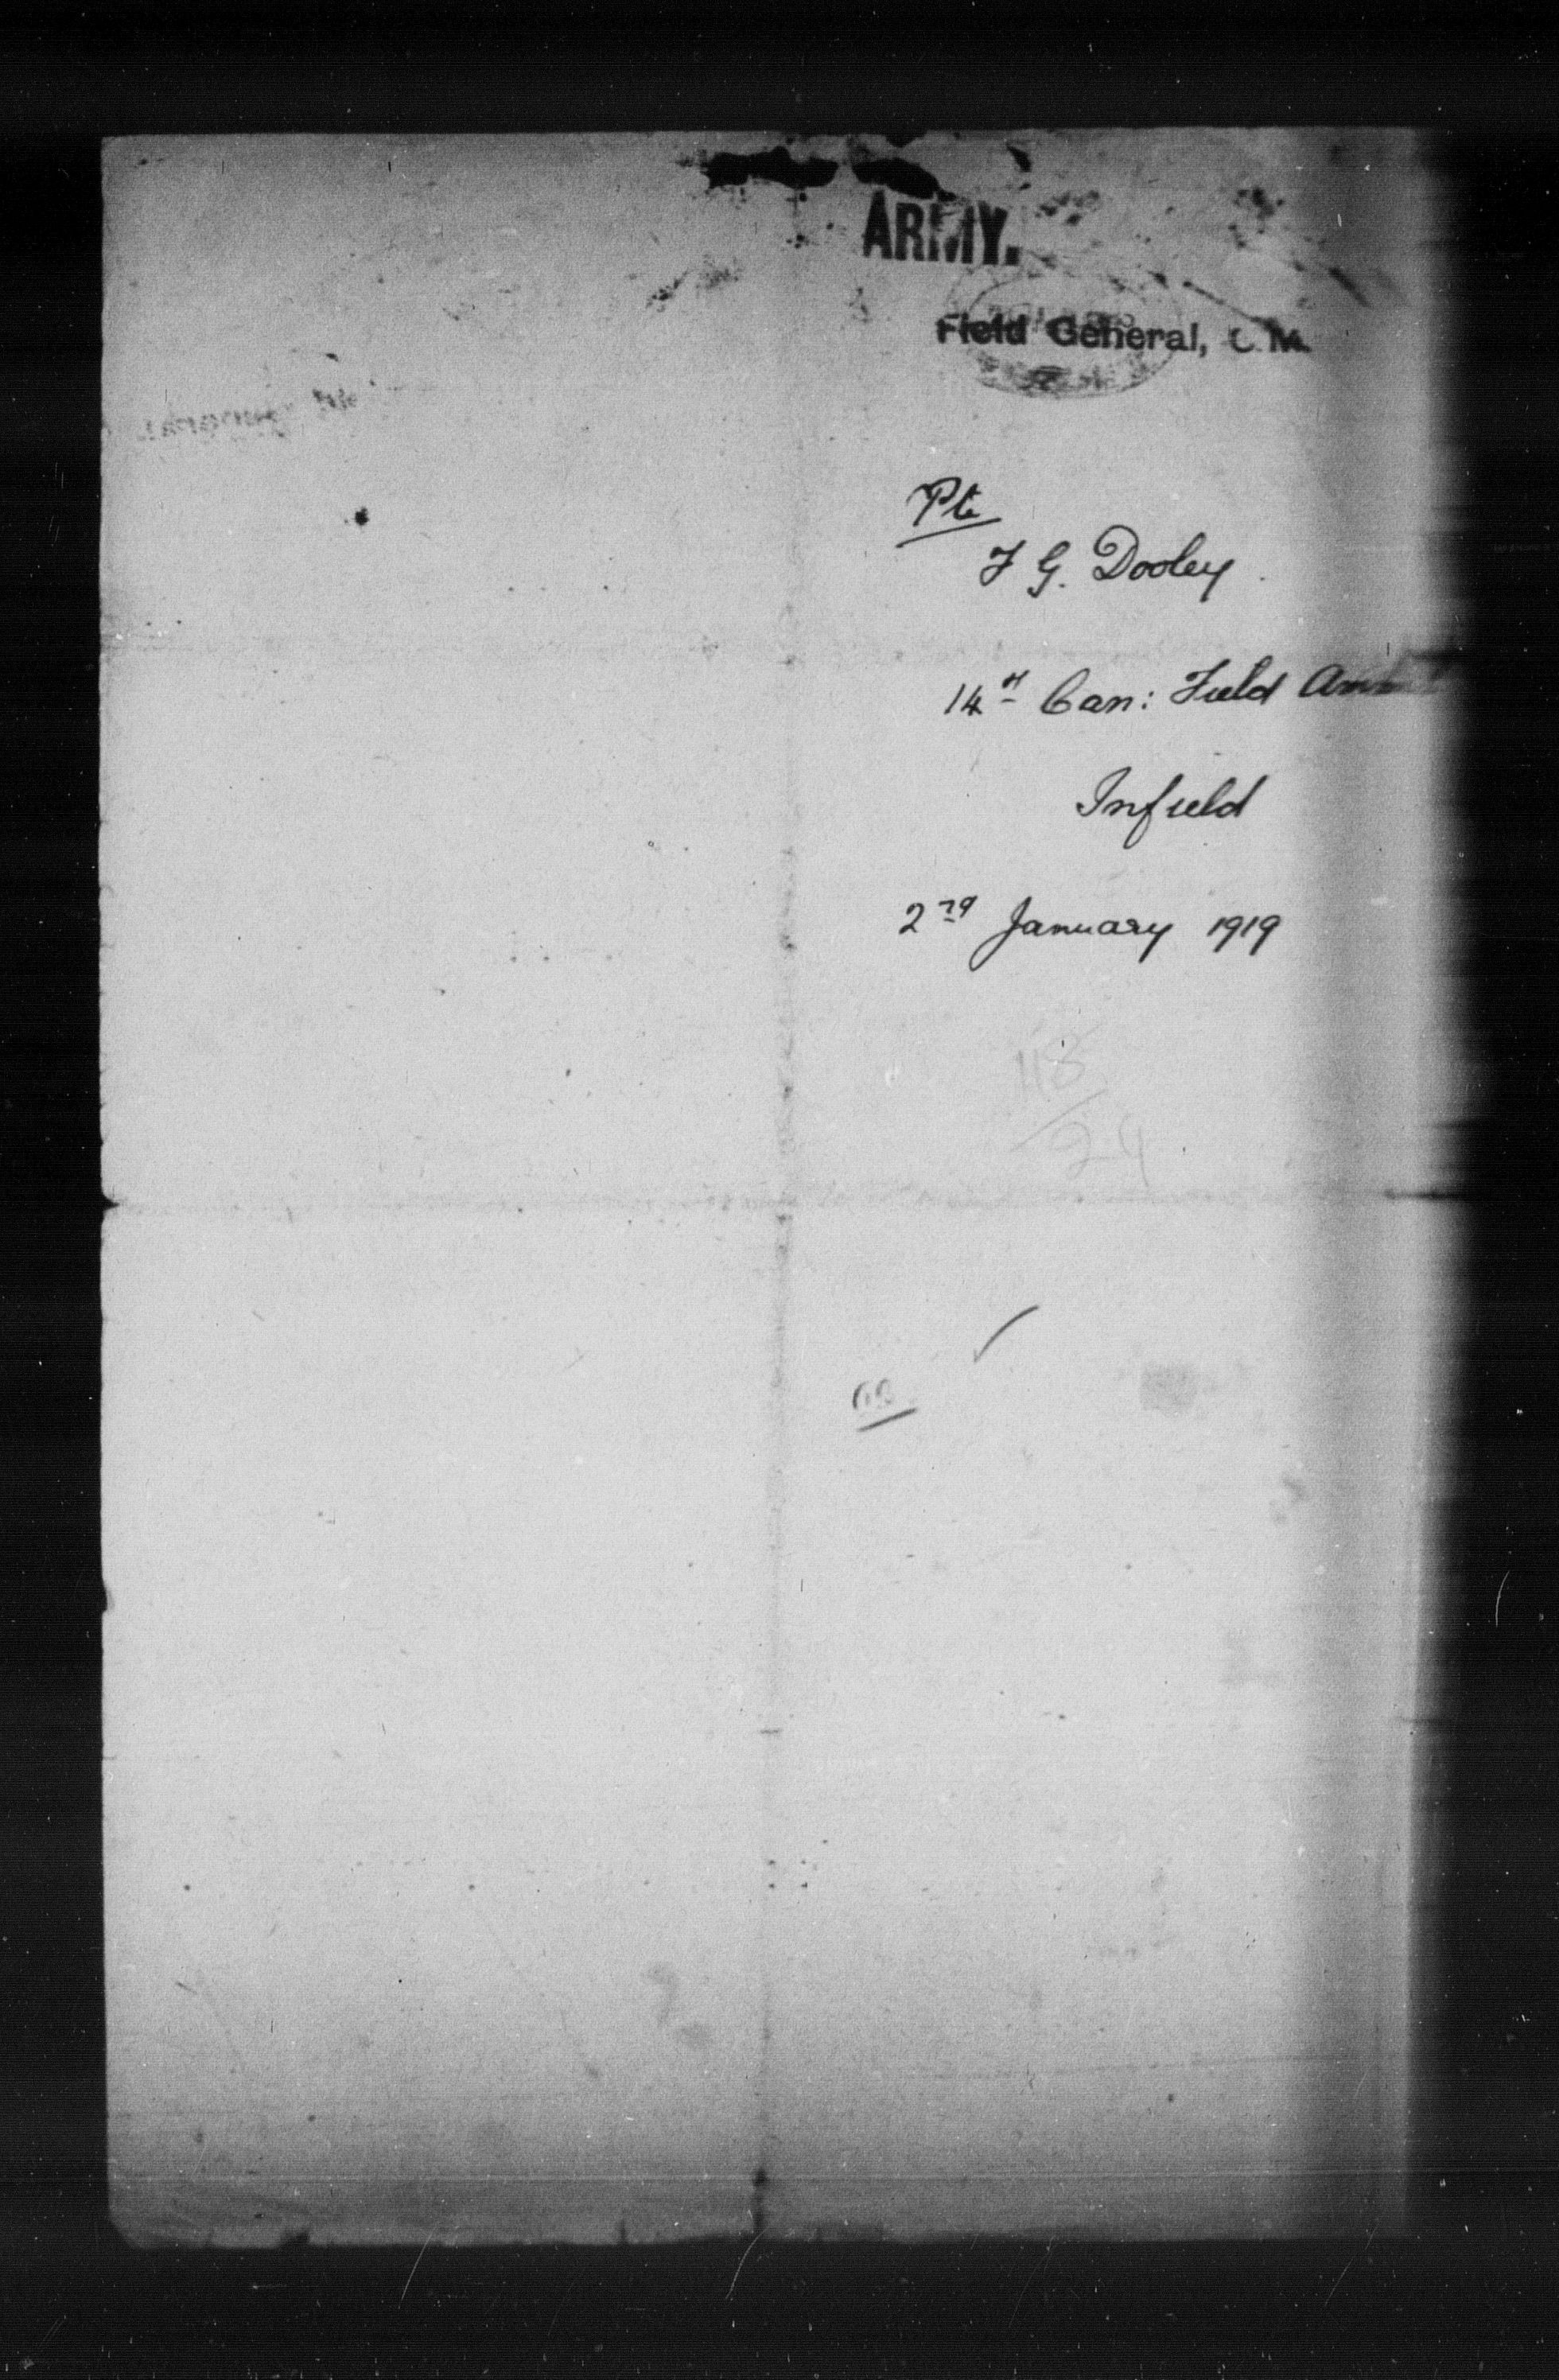 ARMY.
Field General, C.M.
Pte
F G. Dooley.
14th Can: Field Amb
Infield
2nd January 1919
118
24